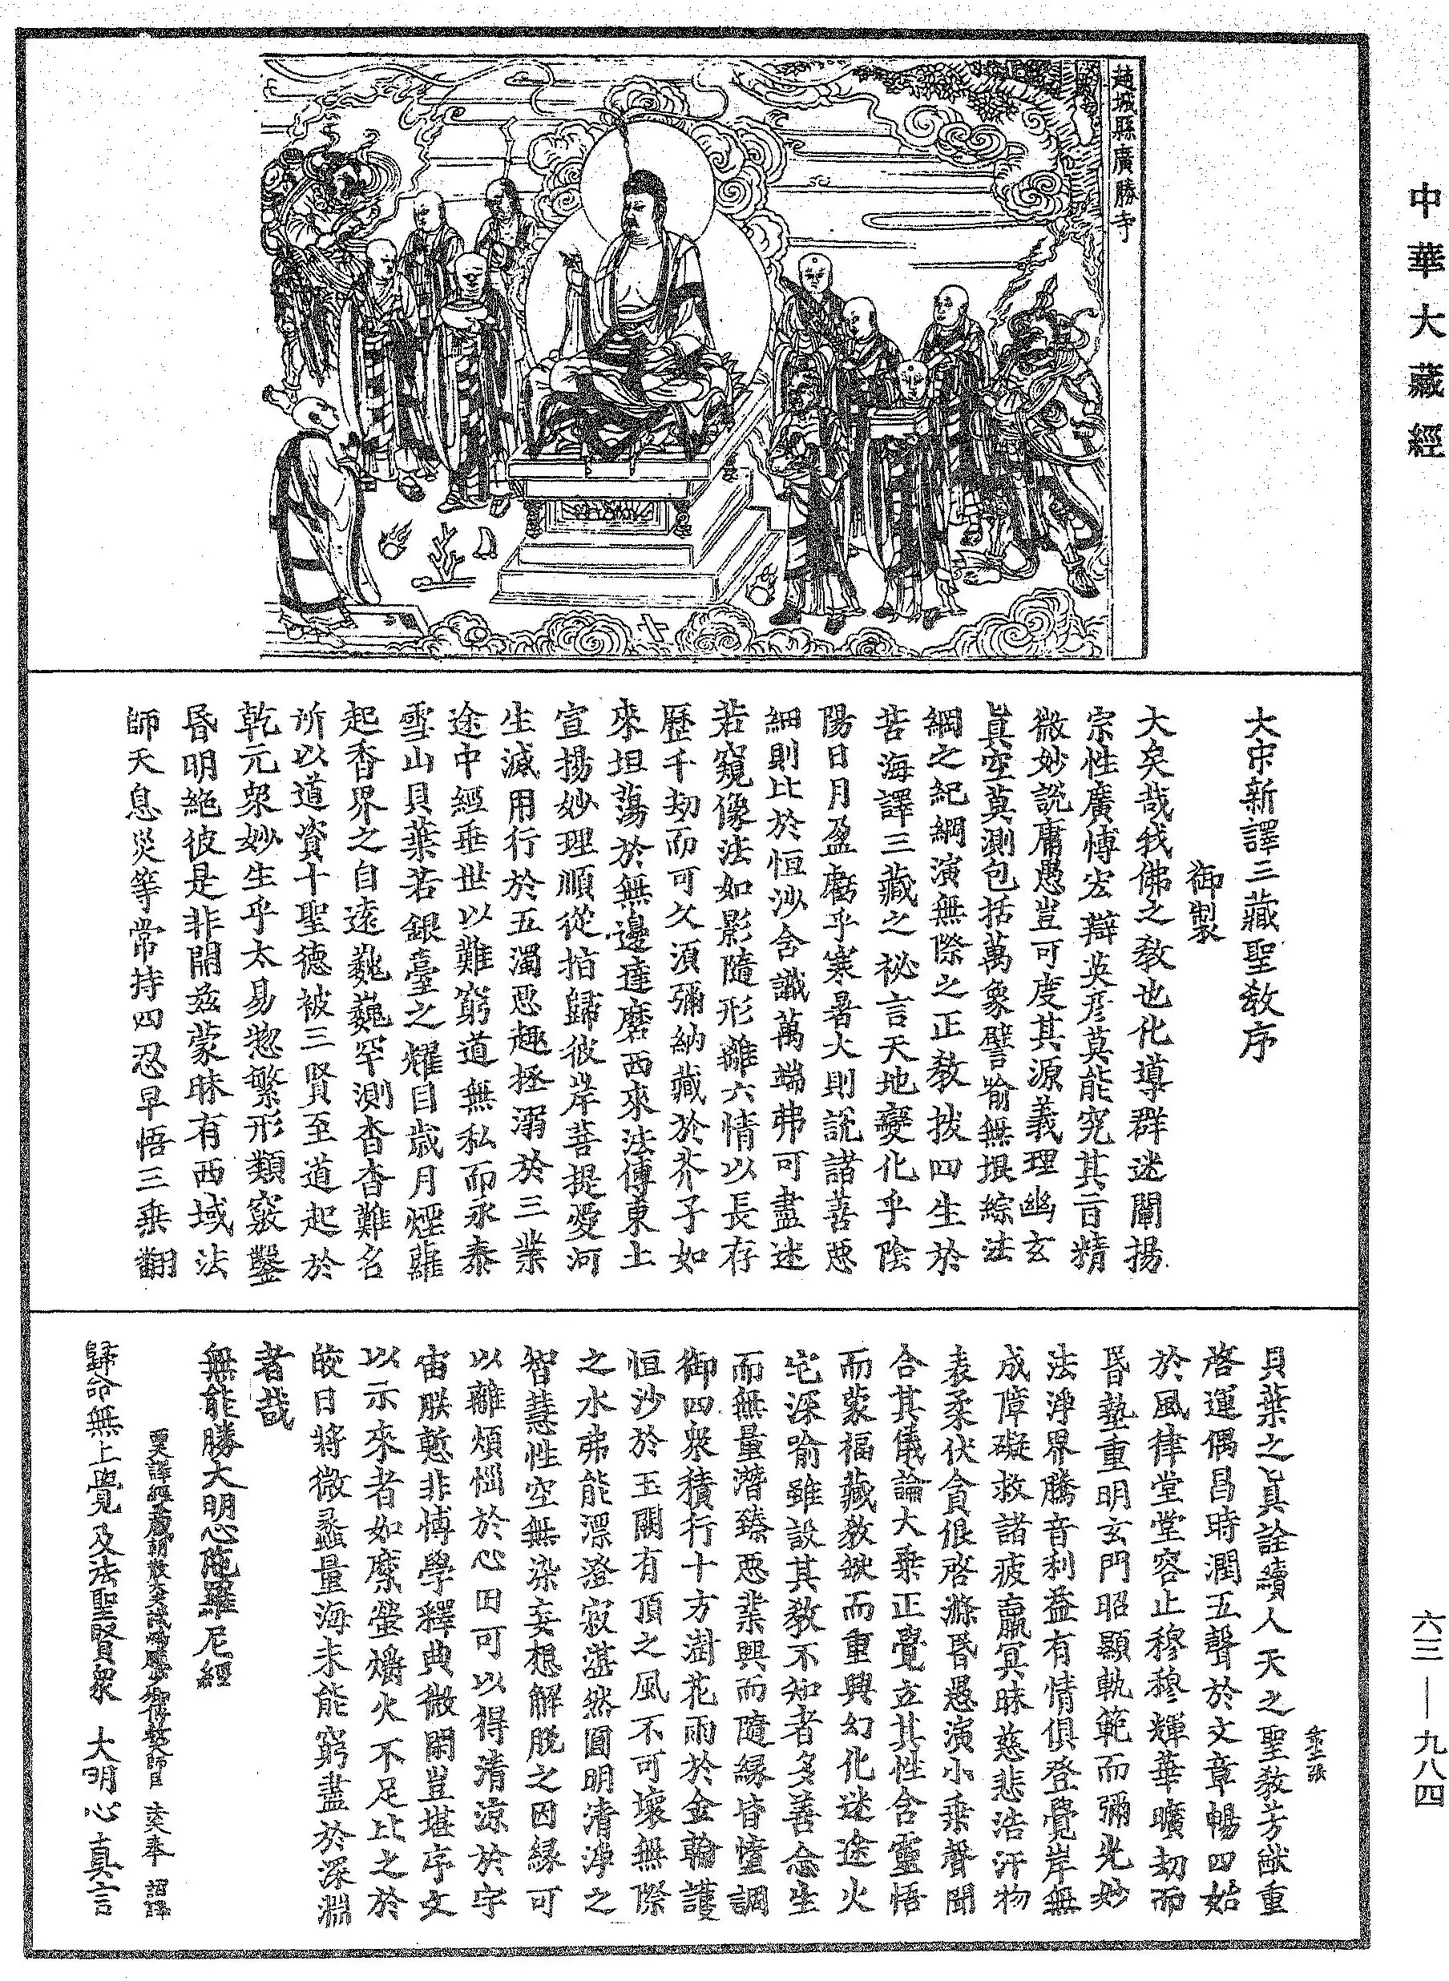 中華大藏經
趙城縣廣勝寺
大宋新譯三藏聖教序
御製
大矣哉我佛之教也化導群迷闡揚
宗性廣博宏辯英彥莫能究其旨精
微妙說庸愚豈可度其源義理幽玄
真空莫測包括萬象譬喻無垠綜法
網之紀綱演無際之正教拔四生於
苦海譯三藏之祕言天地變化乎陰
陽日月盈虧乎寒暑大則說諸善惡
細則比於恒沙含識萬端弗可盡述
若窺像法如影隨形離六情以長存
歷千劫而可久須彌納藏於芥子如
來坦蕩於無邊達磨西來法傳東土
宣揚妙理順從指歸彼岸菩提愛河
生滅用行於五濁惡趣拯溺於三業
途中經垂世以難窮道無私而永泰
雪山貝葉若銀臺之耀目歲月煙蘿
起香界之自遠巍巍罕測杳杳難名
所以道資十聖德被三賢至道起於
乾元衆妙生乎太易惣繁形類竅鑿
昏明絕彼是非開茲蒙昧有西域法
師天息災等常持四忍早悟三乘翻
貝葉之真詮續人天之聖教芳猷重
啓運偶昌時潤五聲於文章暢四始
於風律堂堂容止穆穆輝華曠劫而
昏墊重明玄門昭顯軌範而彌光妙
法淨界騰音利益有情俱登覺岸無
成障礙救諸疲羸冥昧慈悲浩汗物
表柔伏貪很啓滌昏愚演小乘聲聞
合其儀論大乘正覺立其性含靈悟
而蒙福藏教缺而重興幻化迷途火
宅深喻雖設其教不知者多善念生
而無量潛臻惡業興而隨緣皆墮調
御四衆積行十方澍花雨於金輪護
恒沙於玉關有頂之風不可壞無際
之水弗能漂澄寂湛然圓明清淨之
智慧性空無染妄想解脫之因緣可
以離煩惱於心田可以得清涼於宇
宙朕慙非博學釋典微閑豈堪序文
以示來者如縻螢爝火不足比之於
皎日將微蠡量海未能窮盡於深淵
者哉
無能勝大明心陀羅尼經
西天譯經三藏朝散大夫試鴻臚少卿傳教大師臣法天奉 詔譯
歸命無上覺及法聖賢衆 大明心真言
六三—九八四